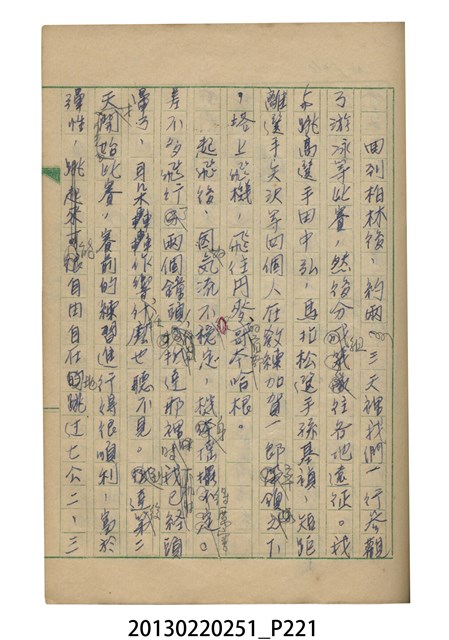 回到柏林後，約兩三天裡我們一行參觀
了游泳等比賽，然後分組往各地遠征。我
与跳高選手田中弘，馬拉松選手孫基禎，短距
離選手矢次等四個人在教練加賀一郎率領之下
，搭上飛機，飛往丹麥的首都哥本哈根。
起飛後，因氣流不穩定，機身搖擺不定。
差不多飛行了兩個鐘頭，到達那裡時我已經頭
暈了，耳朵作響什麼也聽不見。到達後第二
天開始比賽，賽前的練習進行得很順利，富於
彈性，跳起來能很自由自在地跳过七公二、三
20130220251_P221